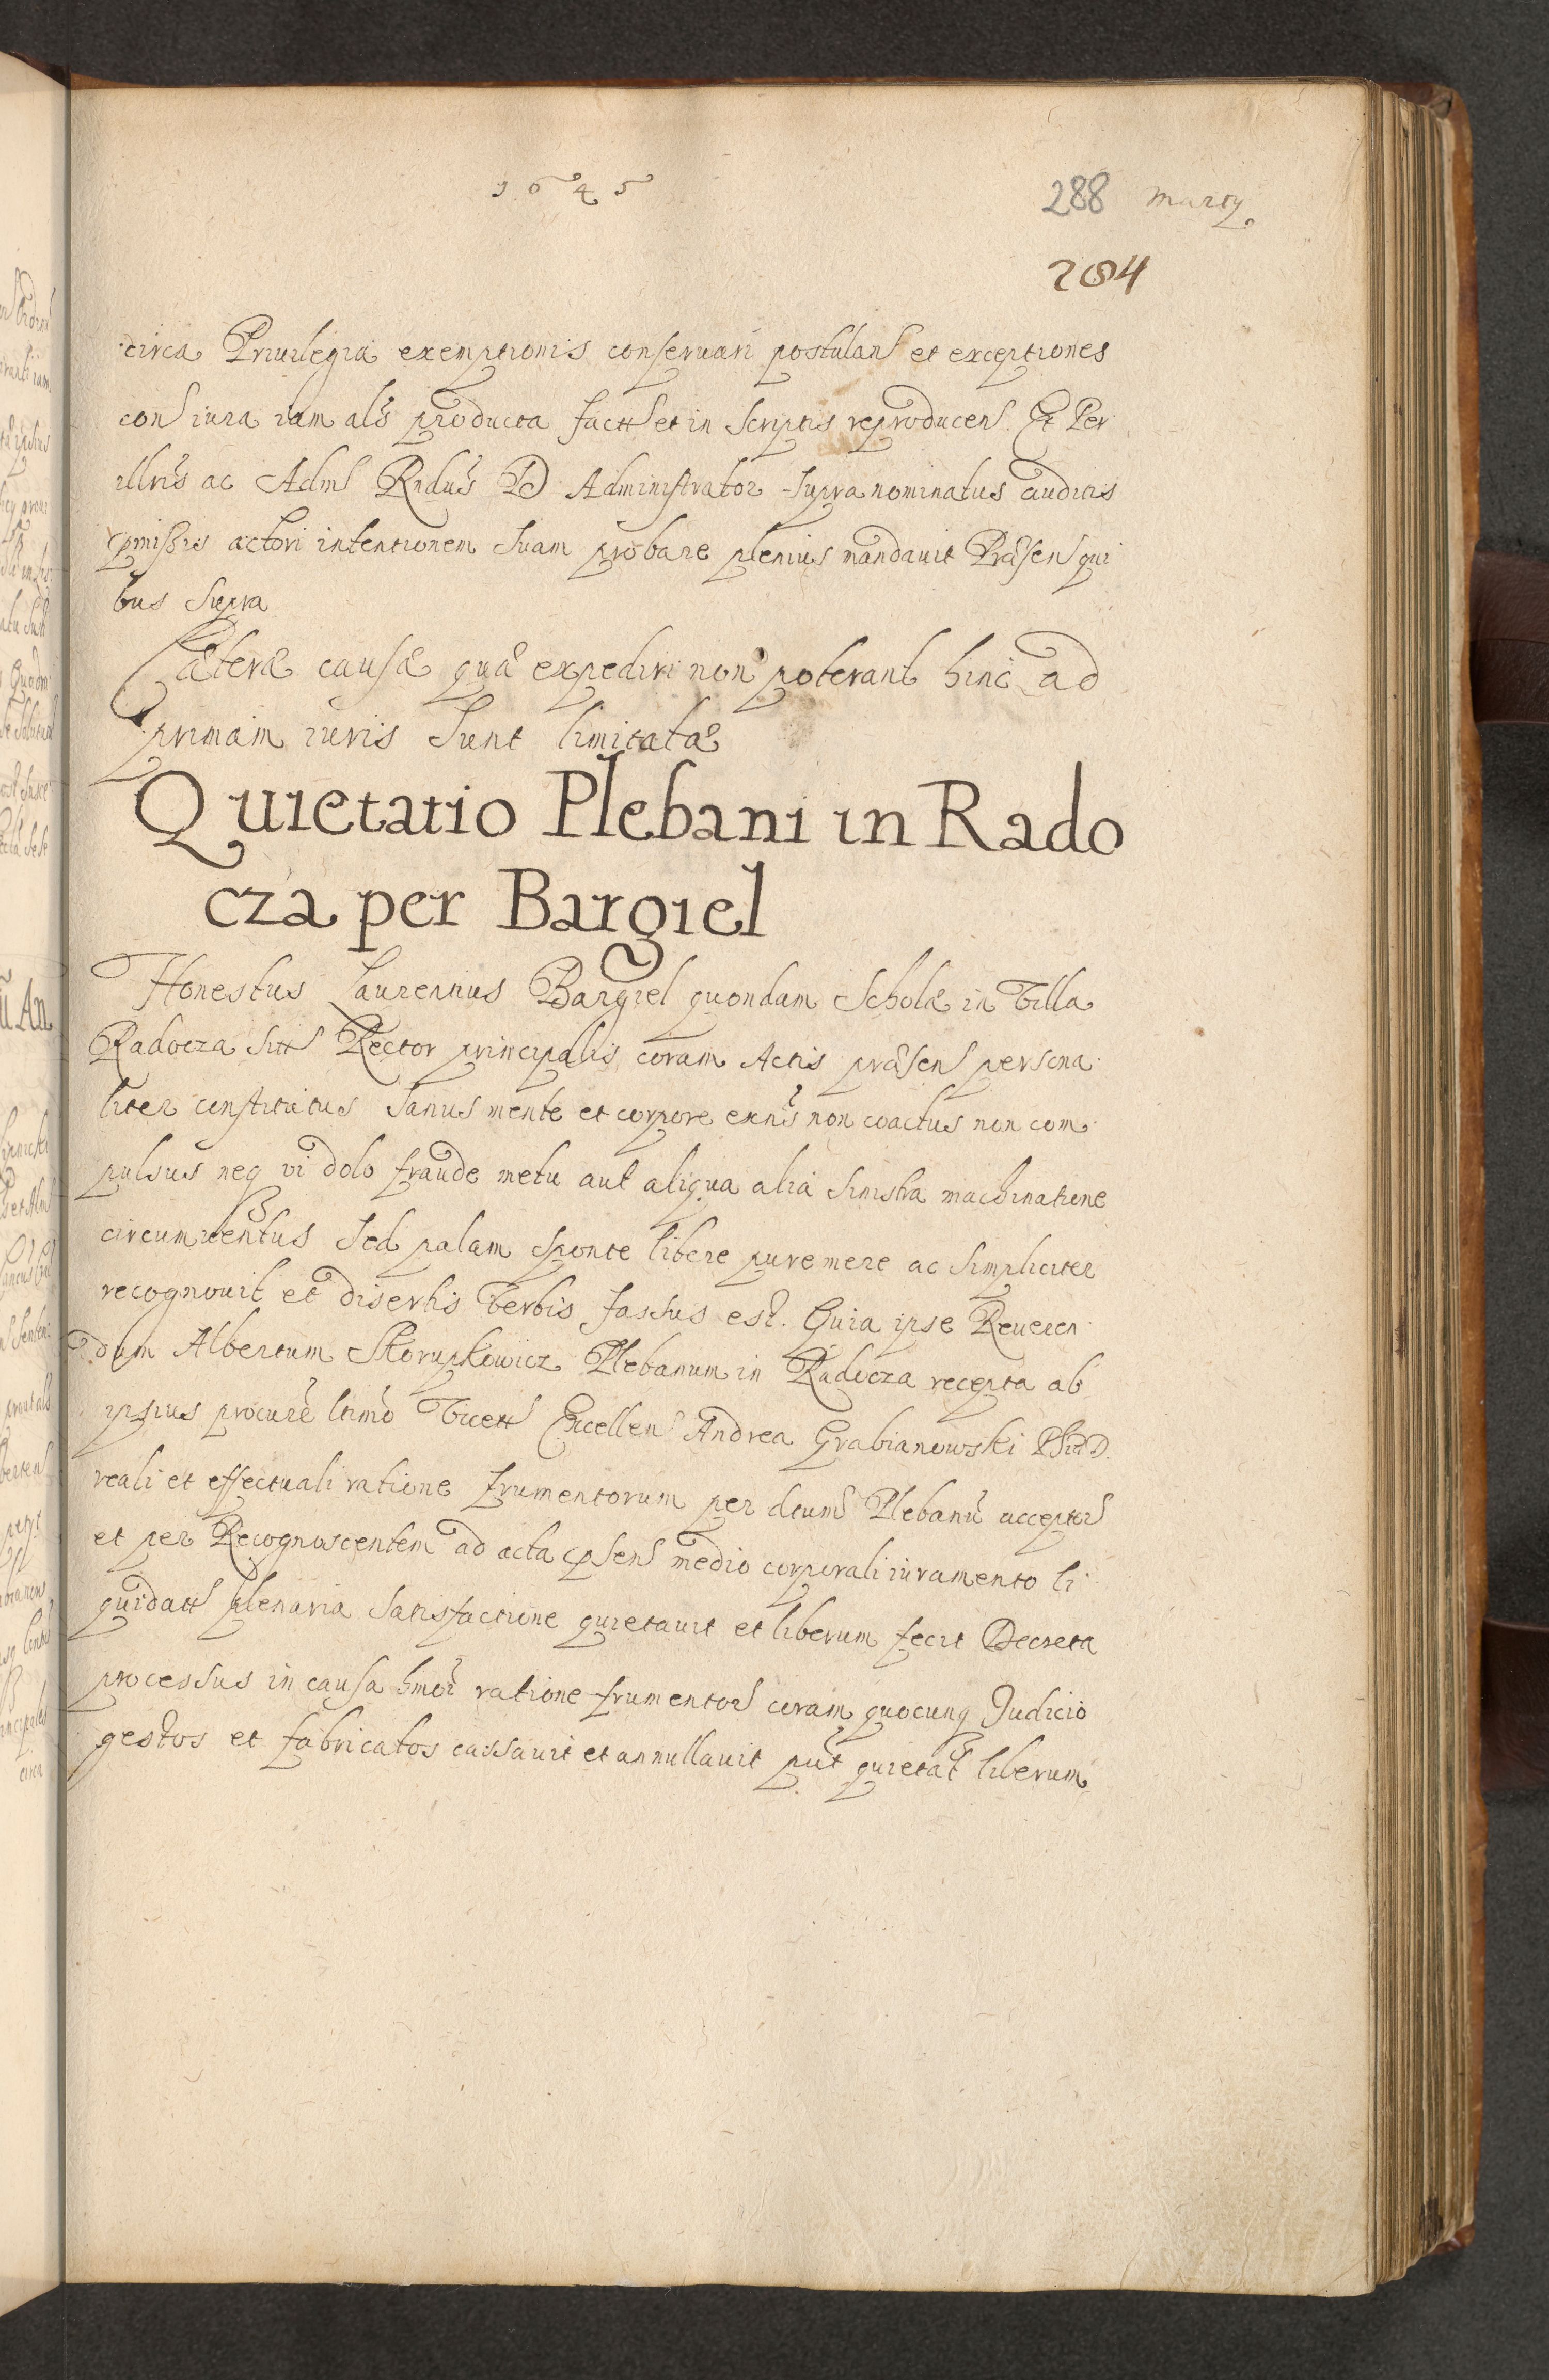 1645
288 Marty
284
circa Priuilegia exemptionis conseruari postulans et exceptiones
cons iura iam als producta factis et in scriptis reproducens. Et Per
illris ac Adms Rndus D Administrator supra nominatus auditis
pmissis actori intentionem suam probare plenius mandauit Præsen qui
bus supra
Cæteræ causæ quæ expediri non poterant hinc ad
primam iuris sunt limitatæ
Quietatio Plebani in Rado
cza per Bargiel
Honestus Laurentius Bargiel quondam Scholæ in Villa
Radocza sitt Rector principalis coram Actis præsens persona
liter constitutus sanus mente et corpore exns non coactus non com
pulsus neq vi dolo fraude metu aut aliqua alia sinistra machinatione
circumuentus sed palam sponte libere pure mere ac simpliciter
recognouit et disertis Verbis fassus est. Quia ipse Reueren
dum Albertum Skorupkowicz Plebanum in Radocza recepta ab
ipsius procure ltimo Excellen Andrea Grabianowski
reali et effectuali ratione frumentorum per dtum Plebanu acceptor
et per Recognoscentem ad acta psens medio corporali iuramento li
quidatt plenaria satisfactione quietauit et liberum fecit Decreta
processus in causa hmoi ratione frumentor coram quocunq Judicio
gestos et fabricatos cassauit et annullauit put quietat liberum